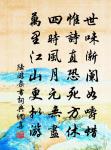 世味漸闌如嚼蠟
惟詩直恐死方休
四時風月元無盡
萬里江山更擬游